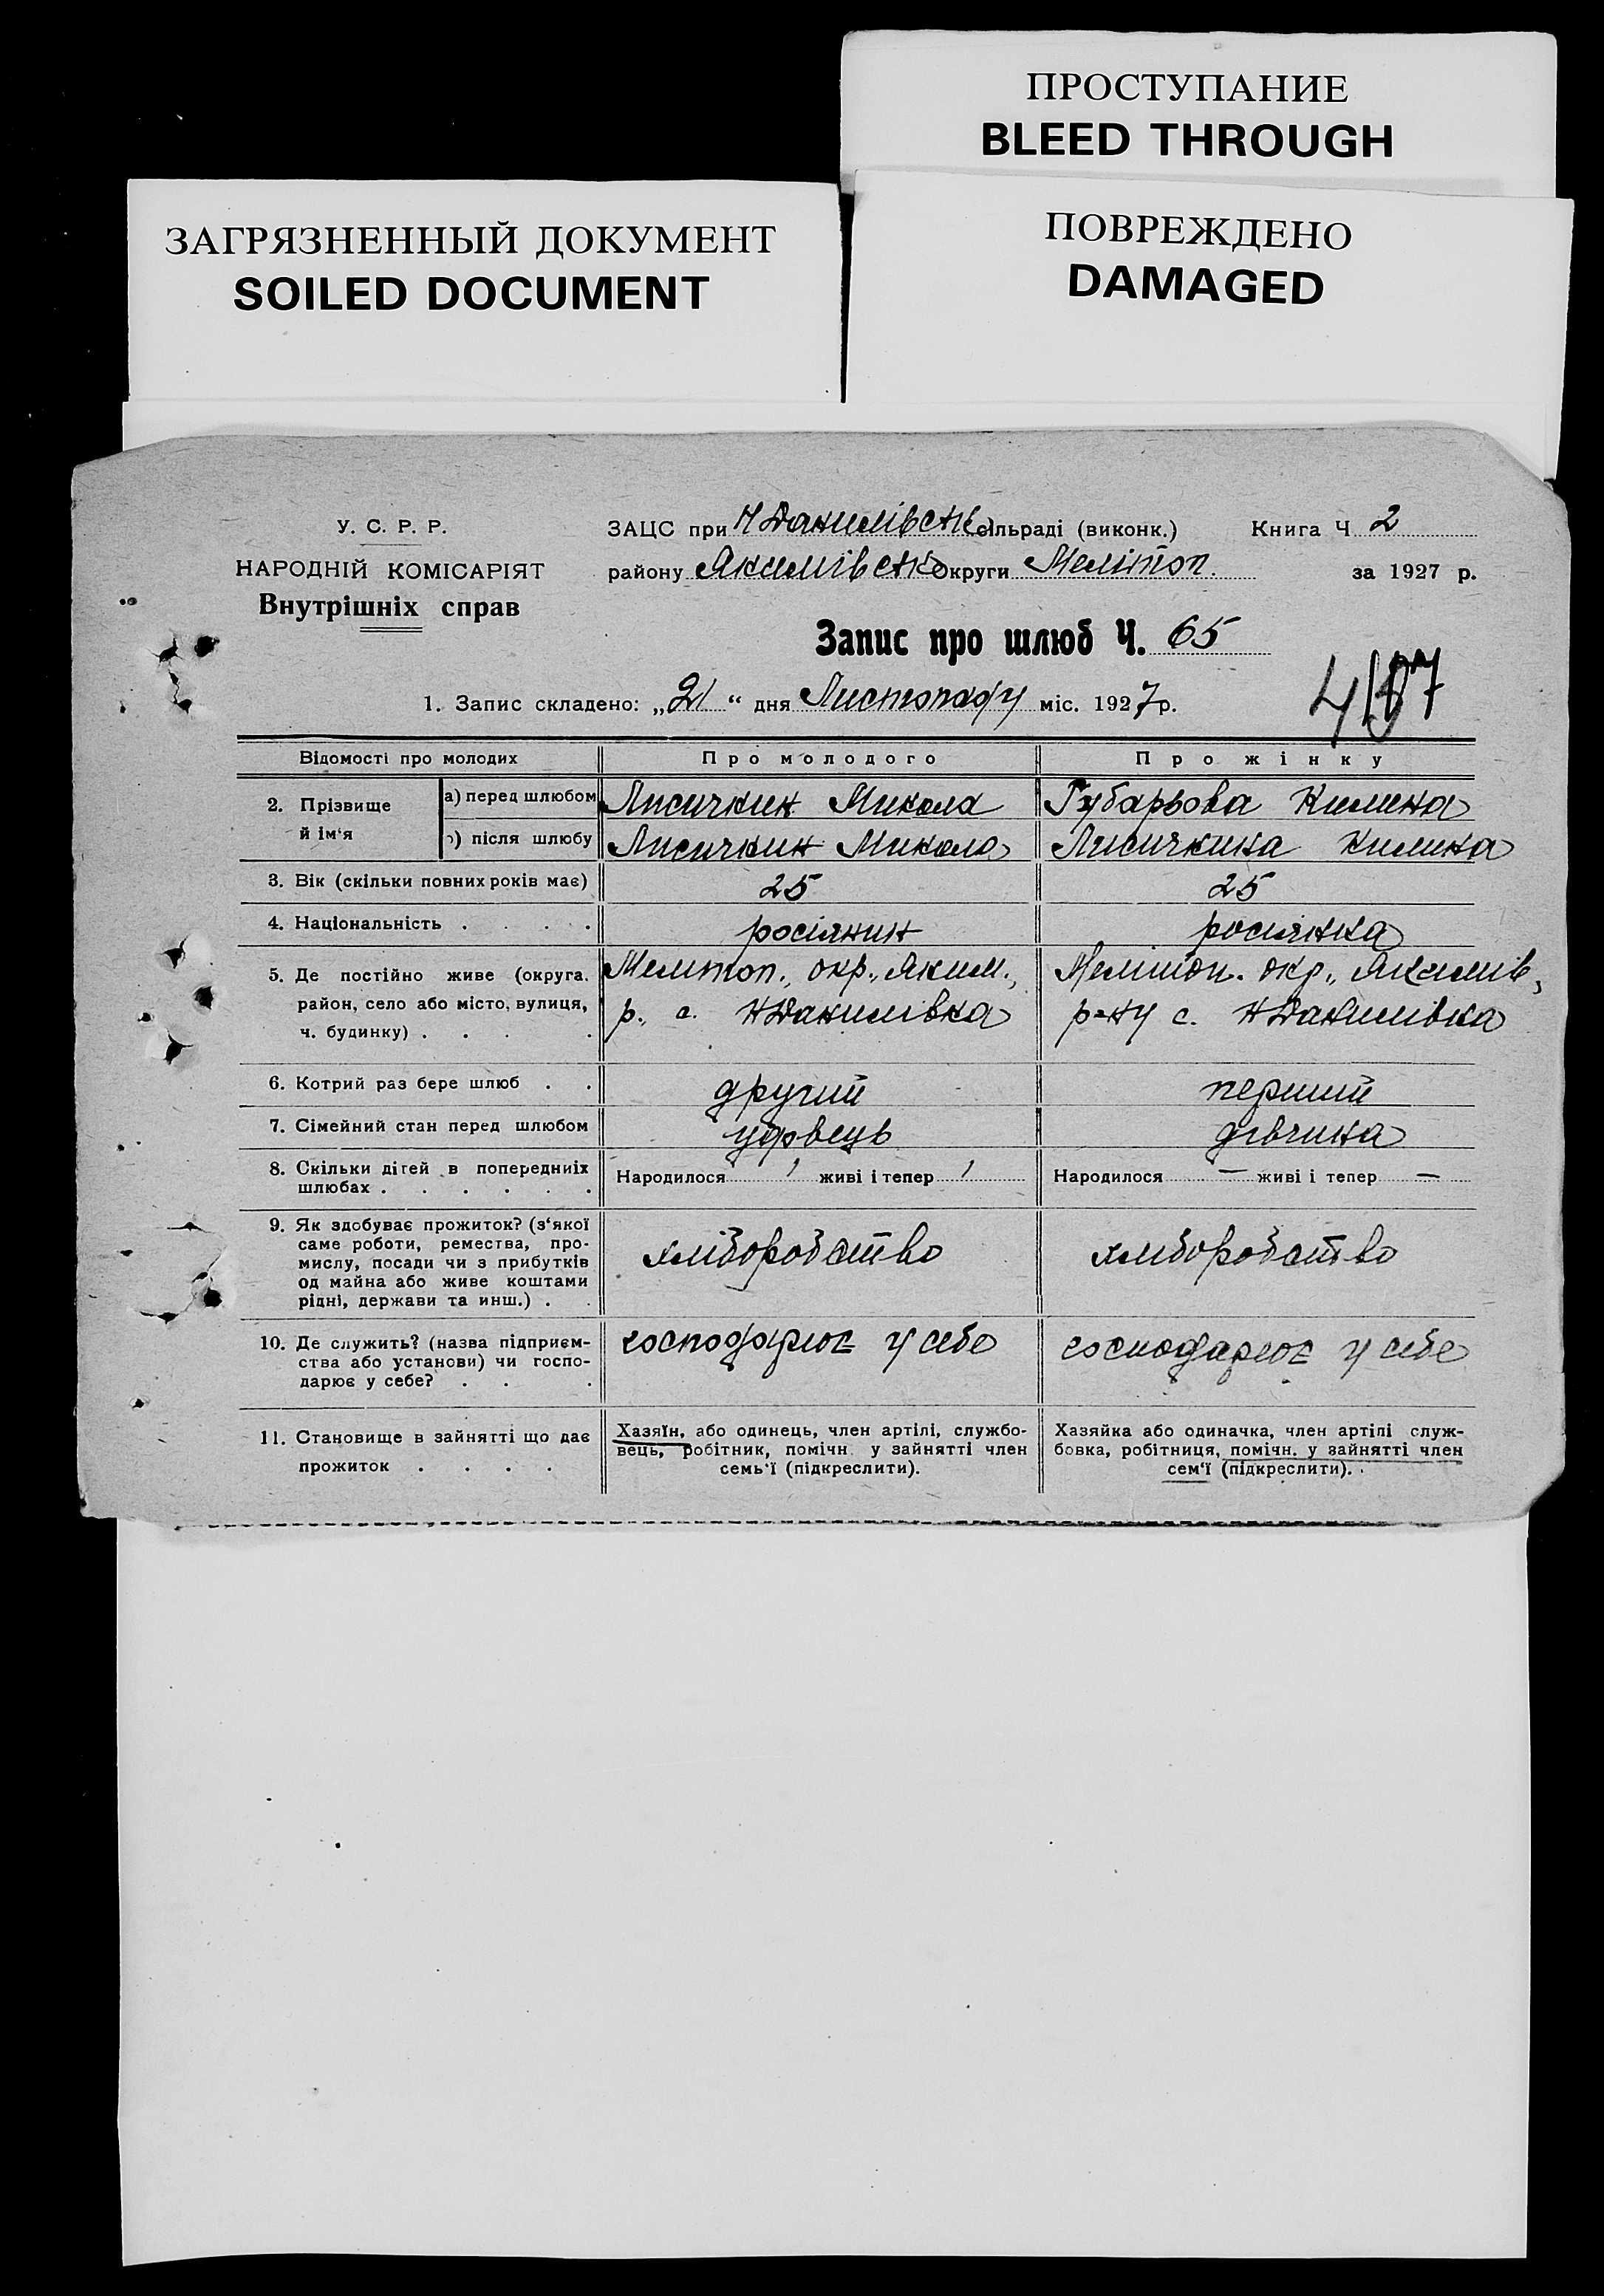 ПРОСТУПАНИЕ
BLEED THROUGH
ЗАГРЯЗНЕННЫЙ ДОКУМЕНТ
SOILED DOCUMENT
ПОВРЕЖДЕНО
DAMAGED
У. С. Р. Р.
НАРОДНІЙ КОМІСАРІЯТ
Внутрішніх справ
ЗАЦС при Н Данилівськ. сільраді (виконк.) Книга Ч 2
району Якимівськ округи Мелітоп. за 1927 р.
Запис про шлюб Ч. 65
1. Запис складено: „21“ дня Листопаду міс. 1927 р.
Відомості про молодих Про молодого Про жінку
2. Прізвище й ім‘я а) перед шлюбом Лисичкин Микола Губарьова Килина
б) після шлюбу Лисичкин Микола Лисичкина Килина
3. Вік (скільки повних років має) 25 25
4. Національність . . . . росіянин росіянка
5. Де постійно живе (округа. Мелітоп., окр., Яким., Мелітоп. окр., Якимів,
район, село або місто, вулиця, р., с. НДанилівка р-ну с. НДанилівка
ч. будинку) . . . .
6. Котрий раз бере шлюб . . другий перший
7. Сімейний стан перед шлюбом удовець дівчина
8. Скільки дітей в попередниіх Народилося 1 живі і тепер 1 Народилося — живі і тепер —
шлюбах . . . . . .
9. Як здобуває прожиток? (з‘якої
саме роботи, ремества, про-
мислу, посади чи з прибутків хліборобство хліборобство
од майна або живе коштами
рідні, держави та инш.) . .
10. Де служить? (назва підприєм- господарює у себе господарює у себе
ства або установи) чи госпо-
дарює у себе? . . .
11. Становище в зайнятті що дає
прожиток . . . .
Хазяїн, або одинець, член артілі, службо-
вець, робітник, помічн. у зайнятті член
семь‘ї (підкреслити).
Хазяйка або одиначка, член артілі служ-
бовка, робітниця, помічн. у зайнятті член
сем‘ї (підкреслити).